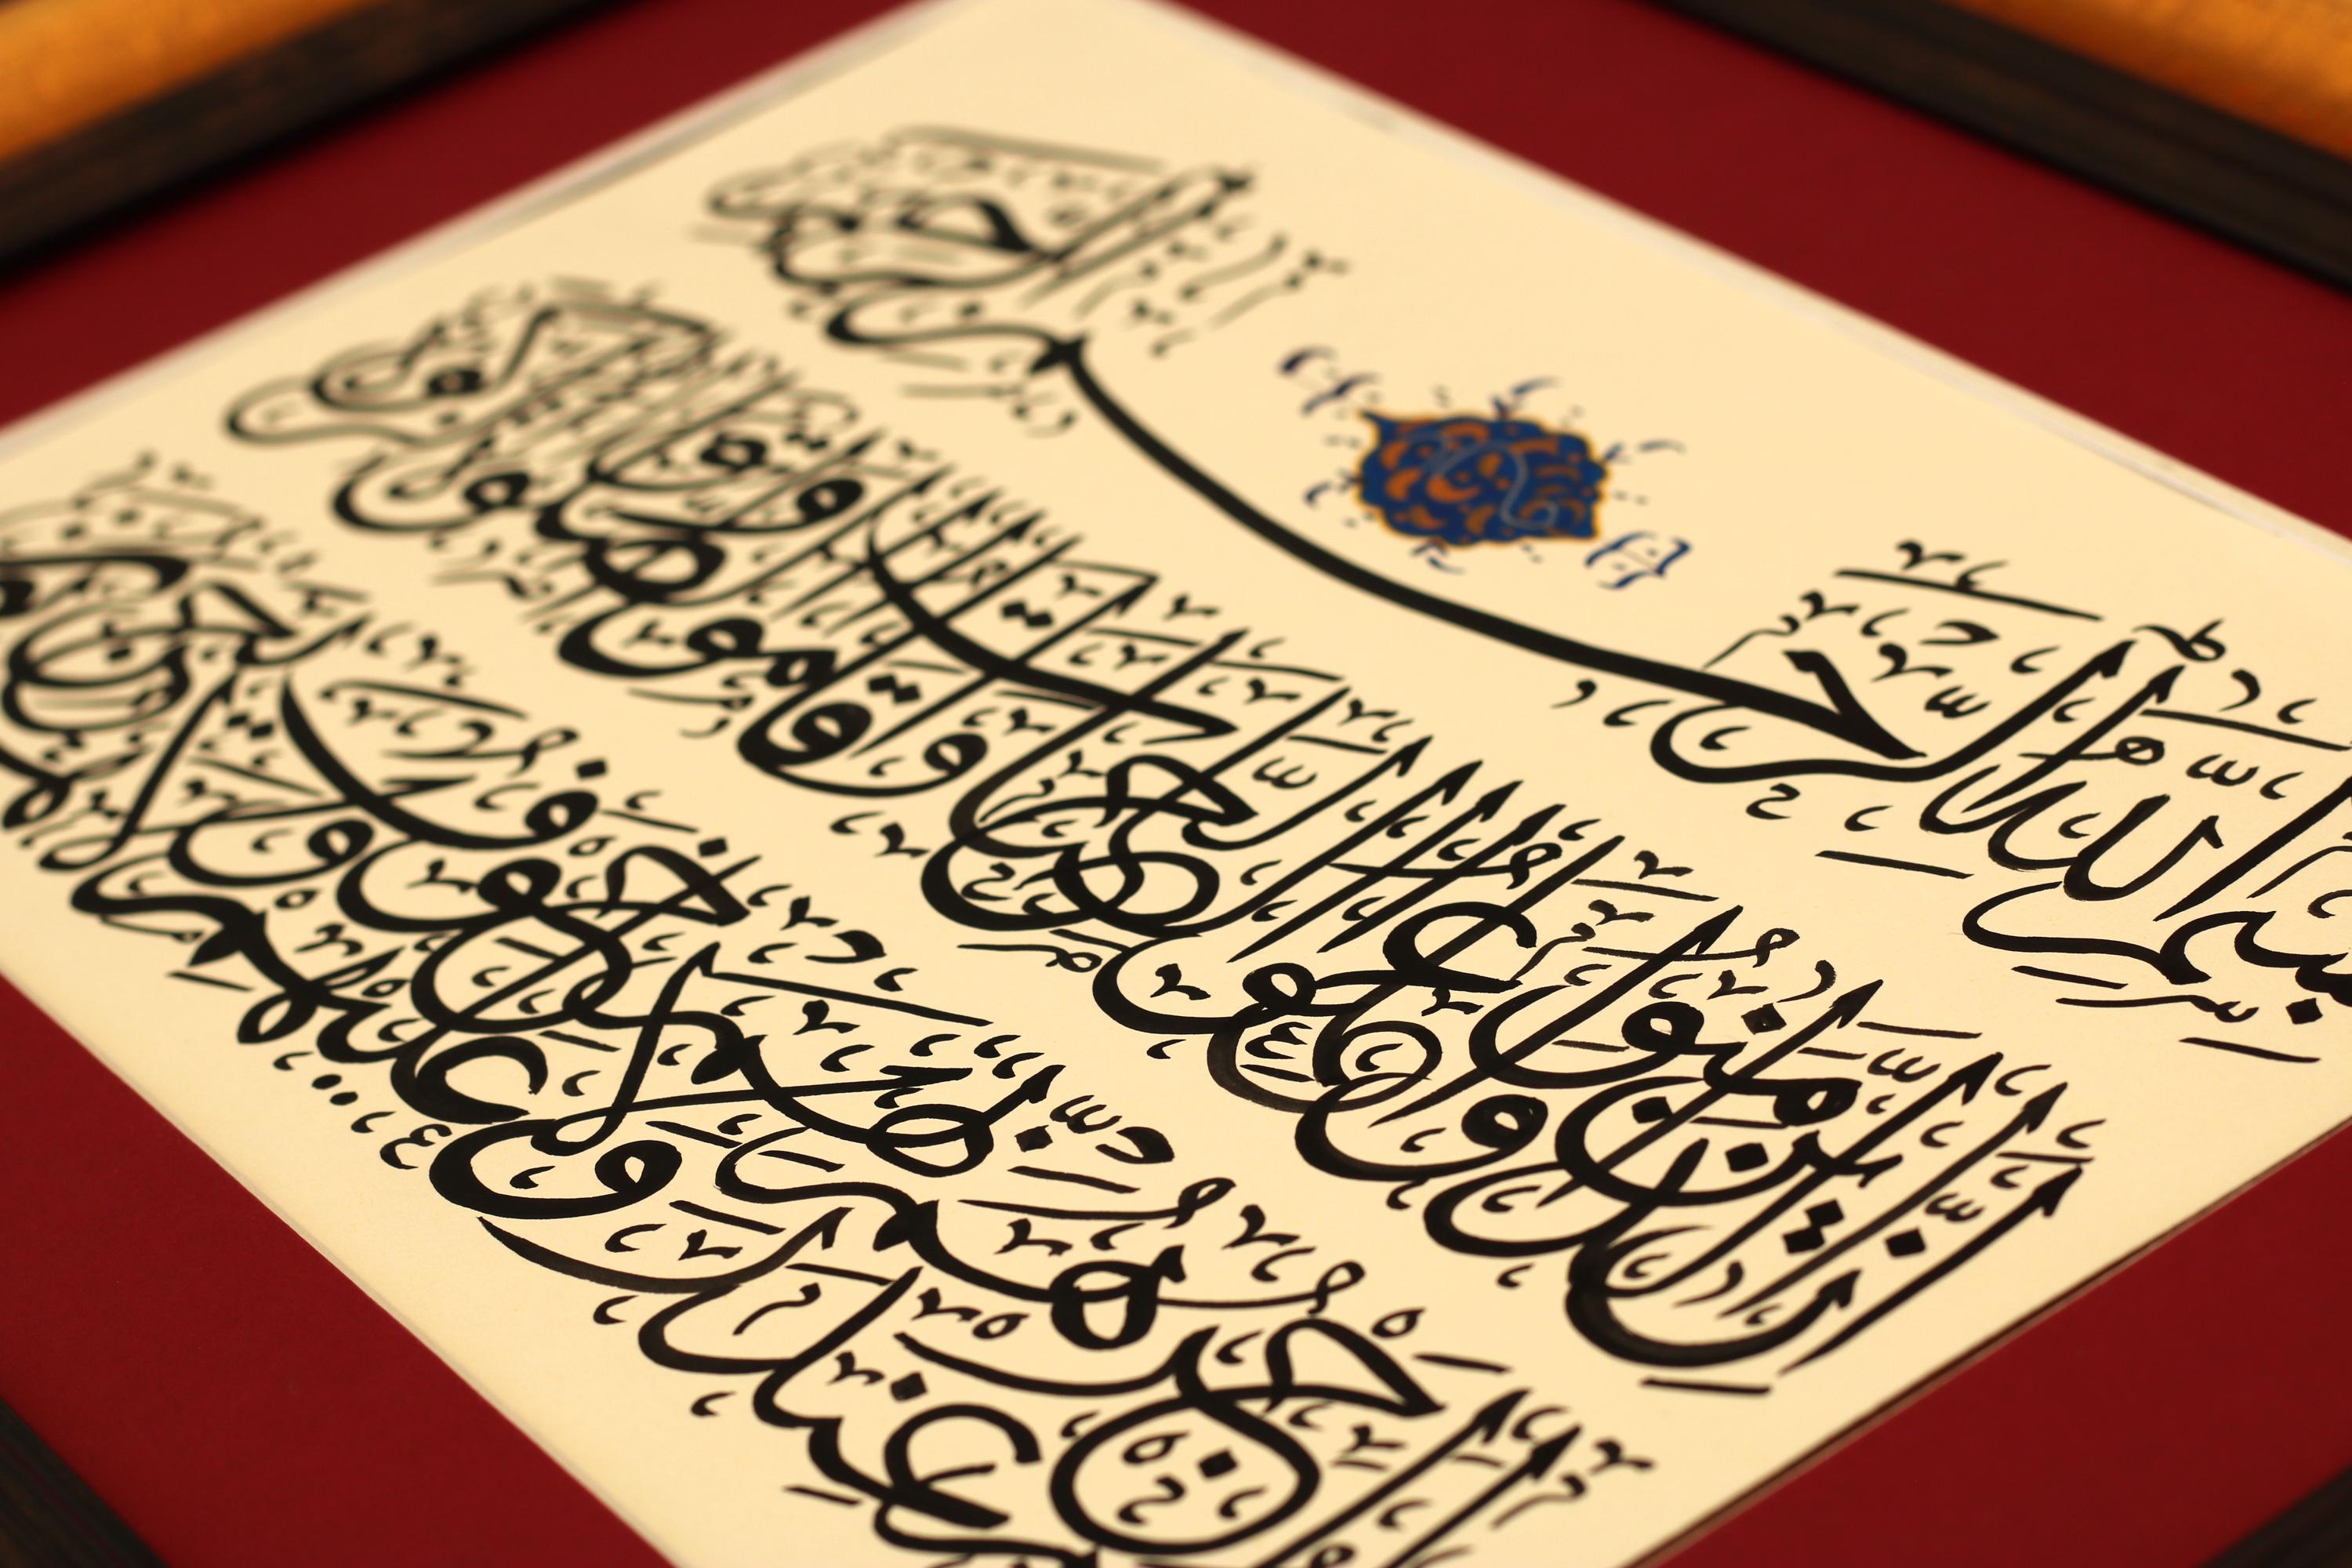 بِسْمِ اللّٰهِ الرَّحْمٰنِ الرَّحِيمِ
إِنَّ الَّذِينَ آمَنُوا وَعَمِلُوا الصَّالِحَاتِ وَأَقَامُوا الصَّلٰوةَ وَآتَوُا الزَّكٰوةَ
لَهُمْ أَجْرُهُمْ عِنْدَ رَبِّهِمْ وَلَا خَوْفٌ عَلَيْهِمْ وَلَا هُمْ يَحْزَنُونَ